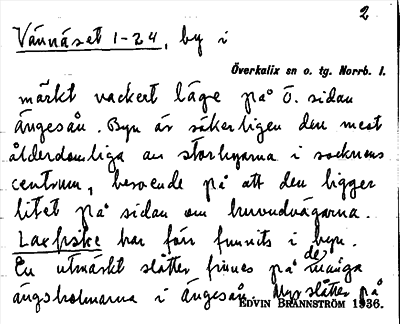 2
Vännäset 1-24, by i
Överkalix sn o. tg. Norrb. l.
märkt vackert läge på ö. sidan
ängesån. Byn är säkerligen den mest
ålderdomliga av storbyarna i socknens
centrum, beroende på att den ligger
litet på sidan om huvudvägarna.
Laxfiske har förr funnits i byn.
En utmärkt slåtter finnes på de många
ängsholmarna i Ängesån. Myrslåtter på
EDVIN BRÄNNSTRÖM 1936.